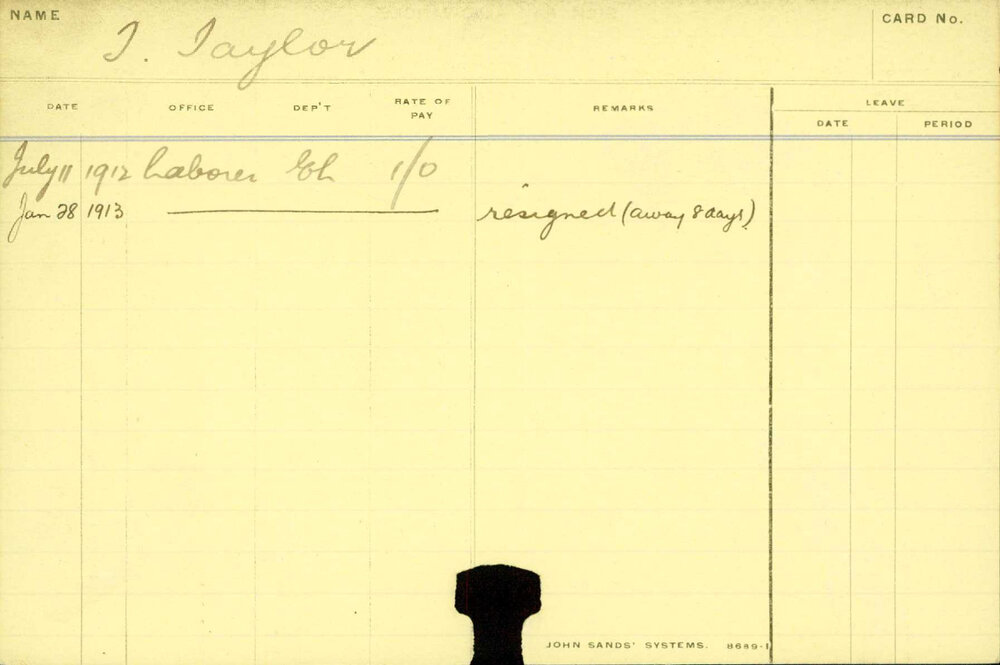 NAME
T. Taylor
CARD No.
DATE OFFICE DEP'T RATE OF PAY REMARKS LEAVE
DATE PERIOD
July 11 1912 Laborer 1/0
Jan 28 1913 resigned (away 8 days)
JOHN SANDS' SYSTEMS. 8689-1